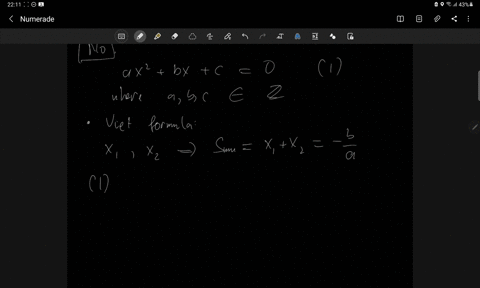 22:11
43%
Numerade
No
ax² + bx + c = 0 (1)
where a, b, c ∈ ℤ
• Viet formula:
x₁, x₂ ⇒ Sum = x₁ + x₂ = -b/a
(1)